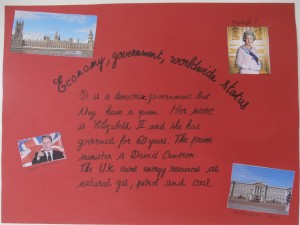 Economy, government, worldwide status
It is a democratic government but
they have a queen. Her name
is Elizabeth II and she has
governed for 60 years. The prime
minister is David Cameron.
The U.K owns energy resources as
natural gas, petrol and coal